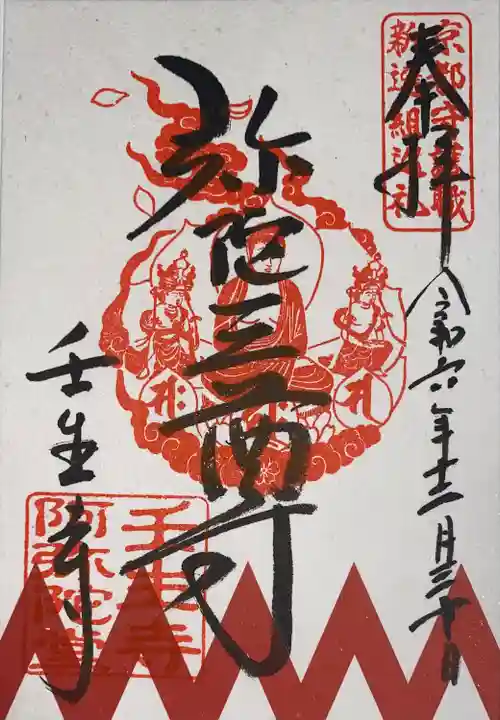 奉拝
京都守護職
新選組巡礼
令和六年十二月三十日
弥陀三尊
壬生寺
壬生寺
阿弥陀堂